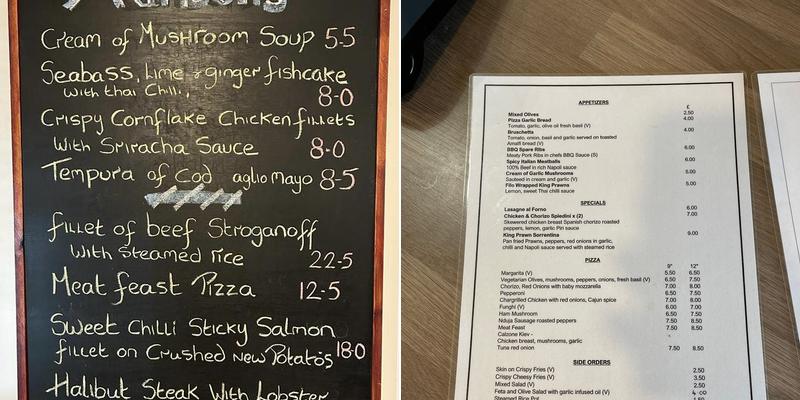 Cream of Mushroom Soup 5-5
Seabass, Lime & ginger fishcake
With thai Chilli,
8-0
Crispy Cornflake Chicken fillets
With Sriracha Sauce 8-0
Tempura of Cod aglio mayo 8-5
fillet of beef Stroganoff
With Steamed rice 22-5
Meat feast Pizza 12-5
Sweet Chilli Sticky Salmon
fillet on Crushed New Potatos 18-0
Halibut Steak With Lobster
APPETIZERS
£
Mixed Olives 2.50
Pizza Garlic Bread 4.00
Tomato, garlic, olive oil fresh basil (V)
Bruschetta 4.00
Tomato, onion, basil and garlic served on toasted
Amalfi bread (V)
BBQ Spare Ribs 6.00
Meaty Pork Ribs in chefs BBQ Sauce (S)
Spicy Italian Meatballs 6.00
100% Beef in rich Napoli sauce
Cream of Garlic Mushrooms 5.00
Sauteed in cream and garlic (V)
Filo Wrapped King Prawns 5.00
Lemon, sweet Thai chilli sauce
SPECIALS
Lasagne al Forno 6.00
Chicken & Chorizo Spiedini x (2) 7.00
Skewered chicken breast Spanish chorizo roasted
peppers, lemon, garlic Piri sauce
King Prawn Sorrentina 9.00
Pan fried Prawns, peppers, red onions in garlic,
chilli and Napoli sauce served with steamed rice
PIZZA
9" 12"
Margarita (V) 5.50 6.50
Vegetarian Olives, mushrooms, peppers, onions, fresh basil (V) 6.50 7.50
Chorizo, Red Onions with baby mozzarella 7.00 8.00
Pepperoni 6.50 7.50
Chargrilled Chicken with red onions, Cajun spice 7.00 8.00
Funghi (V) 6.00 7.00
Ham Mushroom 6.50 7.50
Nduja Sausage roasted peppers 7.50 8.50
Meat Feast 7.50 8.50
Calzone Kiev -
Chicken breast, mushrooms, garlic
Tuna red onion 7.50 8.50
SIDE ORDERS
Skin on Crispy Fries (V) 2.50
Crispy Cheesy Fries 3.50
Mixed Salad (V) 2.50
Feta and Olive Salad with garlic infused oil (V) 4.00
Steamed Rice Pot